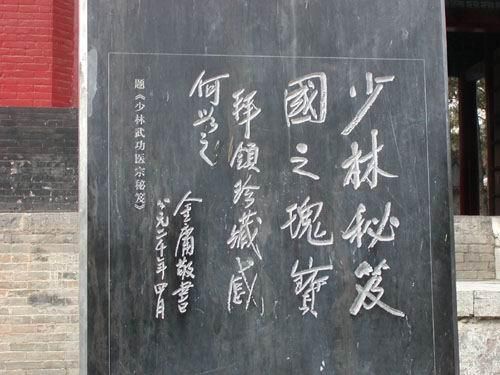 少林秘笈
國之瑰寶
拜領珍藏感
何如之
金庸敬書
公元二千年四月
題《少林武功医宗秘笈》